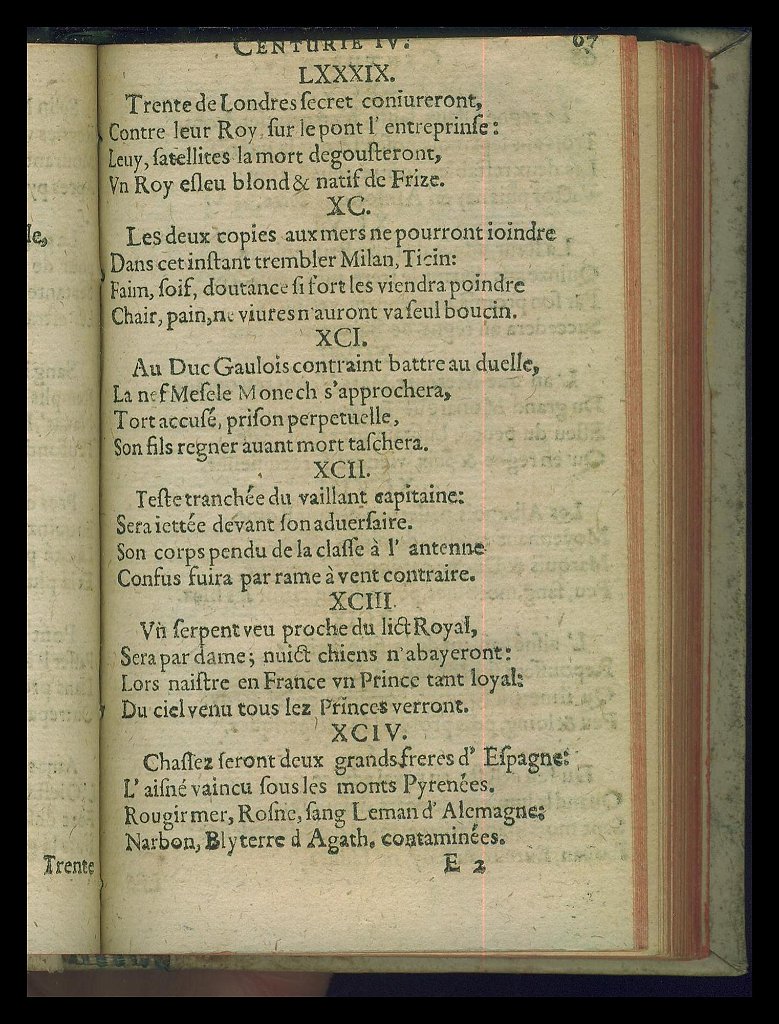 le,
Trente
CENTURIE IV. 67
LXXXIX.
Trente de Londres ſecret coniureront,
Contre leur Roy, ſur le pont l' entreprinſe :
Leuy, ſatellites la mort degouſteront,
Vn Roy eſleu blond & natif de Frize.
XC.
Les deux copies aux mers ne pourront ioindre
Dans cet inſtant trembler Milan, Ticin:
Faim, ſoif, doutance ſi fort les viendra poindre
Chair, pain, ne viures n'auront va ſeul boucin.
XCI.
Au Duc Gaulois contraint battre au duelle,
La nef Meſele Monech s'approchera,
Tort accuſé, priſon perpetuelle,
Son fils regner auant mort taſchera.
XCII.
Teſte tranchée du vaillant capitaine:
Sera iettée devant ſon aduerſaire.
Son corps pendu de la claſſe à l' antenne
Confus fuira par rame à vent contraire.
XCIII.
Vn ſerpent veu proche du lict Royal,
Sera par dame; nuict chiens n'abayeront:
Lors naiſtre en France vn Prince tant loyal:
Du ciel venu tous lez Princes verront.
XCIV.
Chaſſez ſeront deux grands freres d' Eſpagne:
L' aiſné vaincu ſous les monts Pyrenées.
Rougir mer, Roſne, ſang Leman d' Alemagne:
Narbon, Blyterre d Agath. contaminées.
E 2